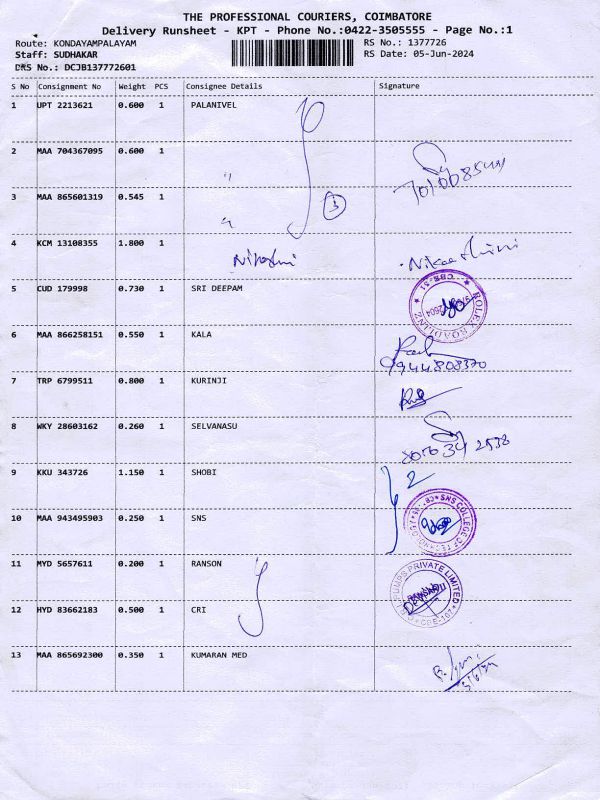 THE PROFESSIONAL COURIERS, COIMBATORE
Delivery Runsheet - KPT - Phone No.:0422-3505555 - Page No.:1
Route: KONDAYAMPALAYAM RS No.: 1377726
Staff: SUDHAKAR RS Date: 05-Jun-2024
DRS No.: DCJB137772601
S No Consignment No Weight PCS Consignee Details Signature
1 UPT 2213621 0.600 1 PALANIVEL
2 MAA 704367095 0.600 1
3 MAA 865601319 0.545 1
3
4 KCM 13108355 1.800 1
5 CUD 179998 0.730 1 SRI DEEPAM
ROLEX ROADLINZ
CBE-51
6 MAA 866258151 0.550 1 KALA
9944808370
7 TRP 6799511 0.800 1 KURINJI
8 WKY 28603162 0.260 1 SELVANASU
9 KKU 343726 1.150 1 SHOBI
2
10 MAA 943495903 0.250 1 SNS
SNS COLLEGE OF TECHNOLOGY
11 MYD 5657611 0.200 1 RANSON
PUMPS PRIVATE LIMITED
CBE-107
12 HYD 83662183 0.500 1 CRI
13 MAA 865692300 0.350 1 KUMARAN MED